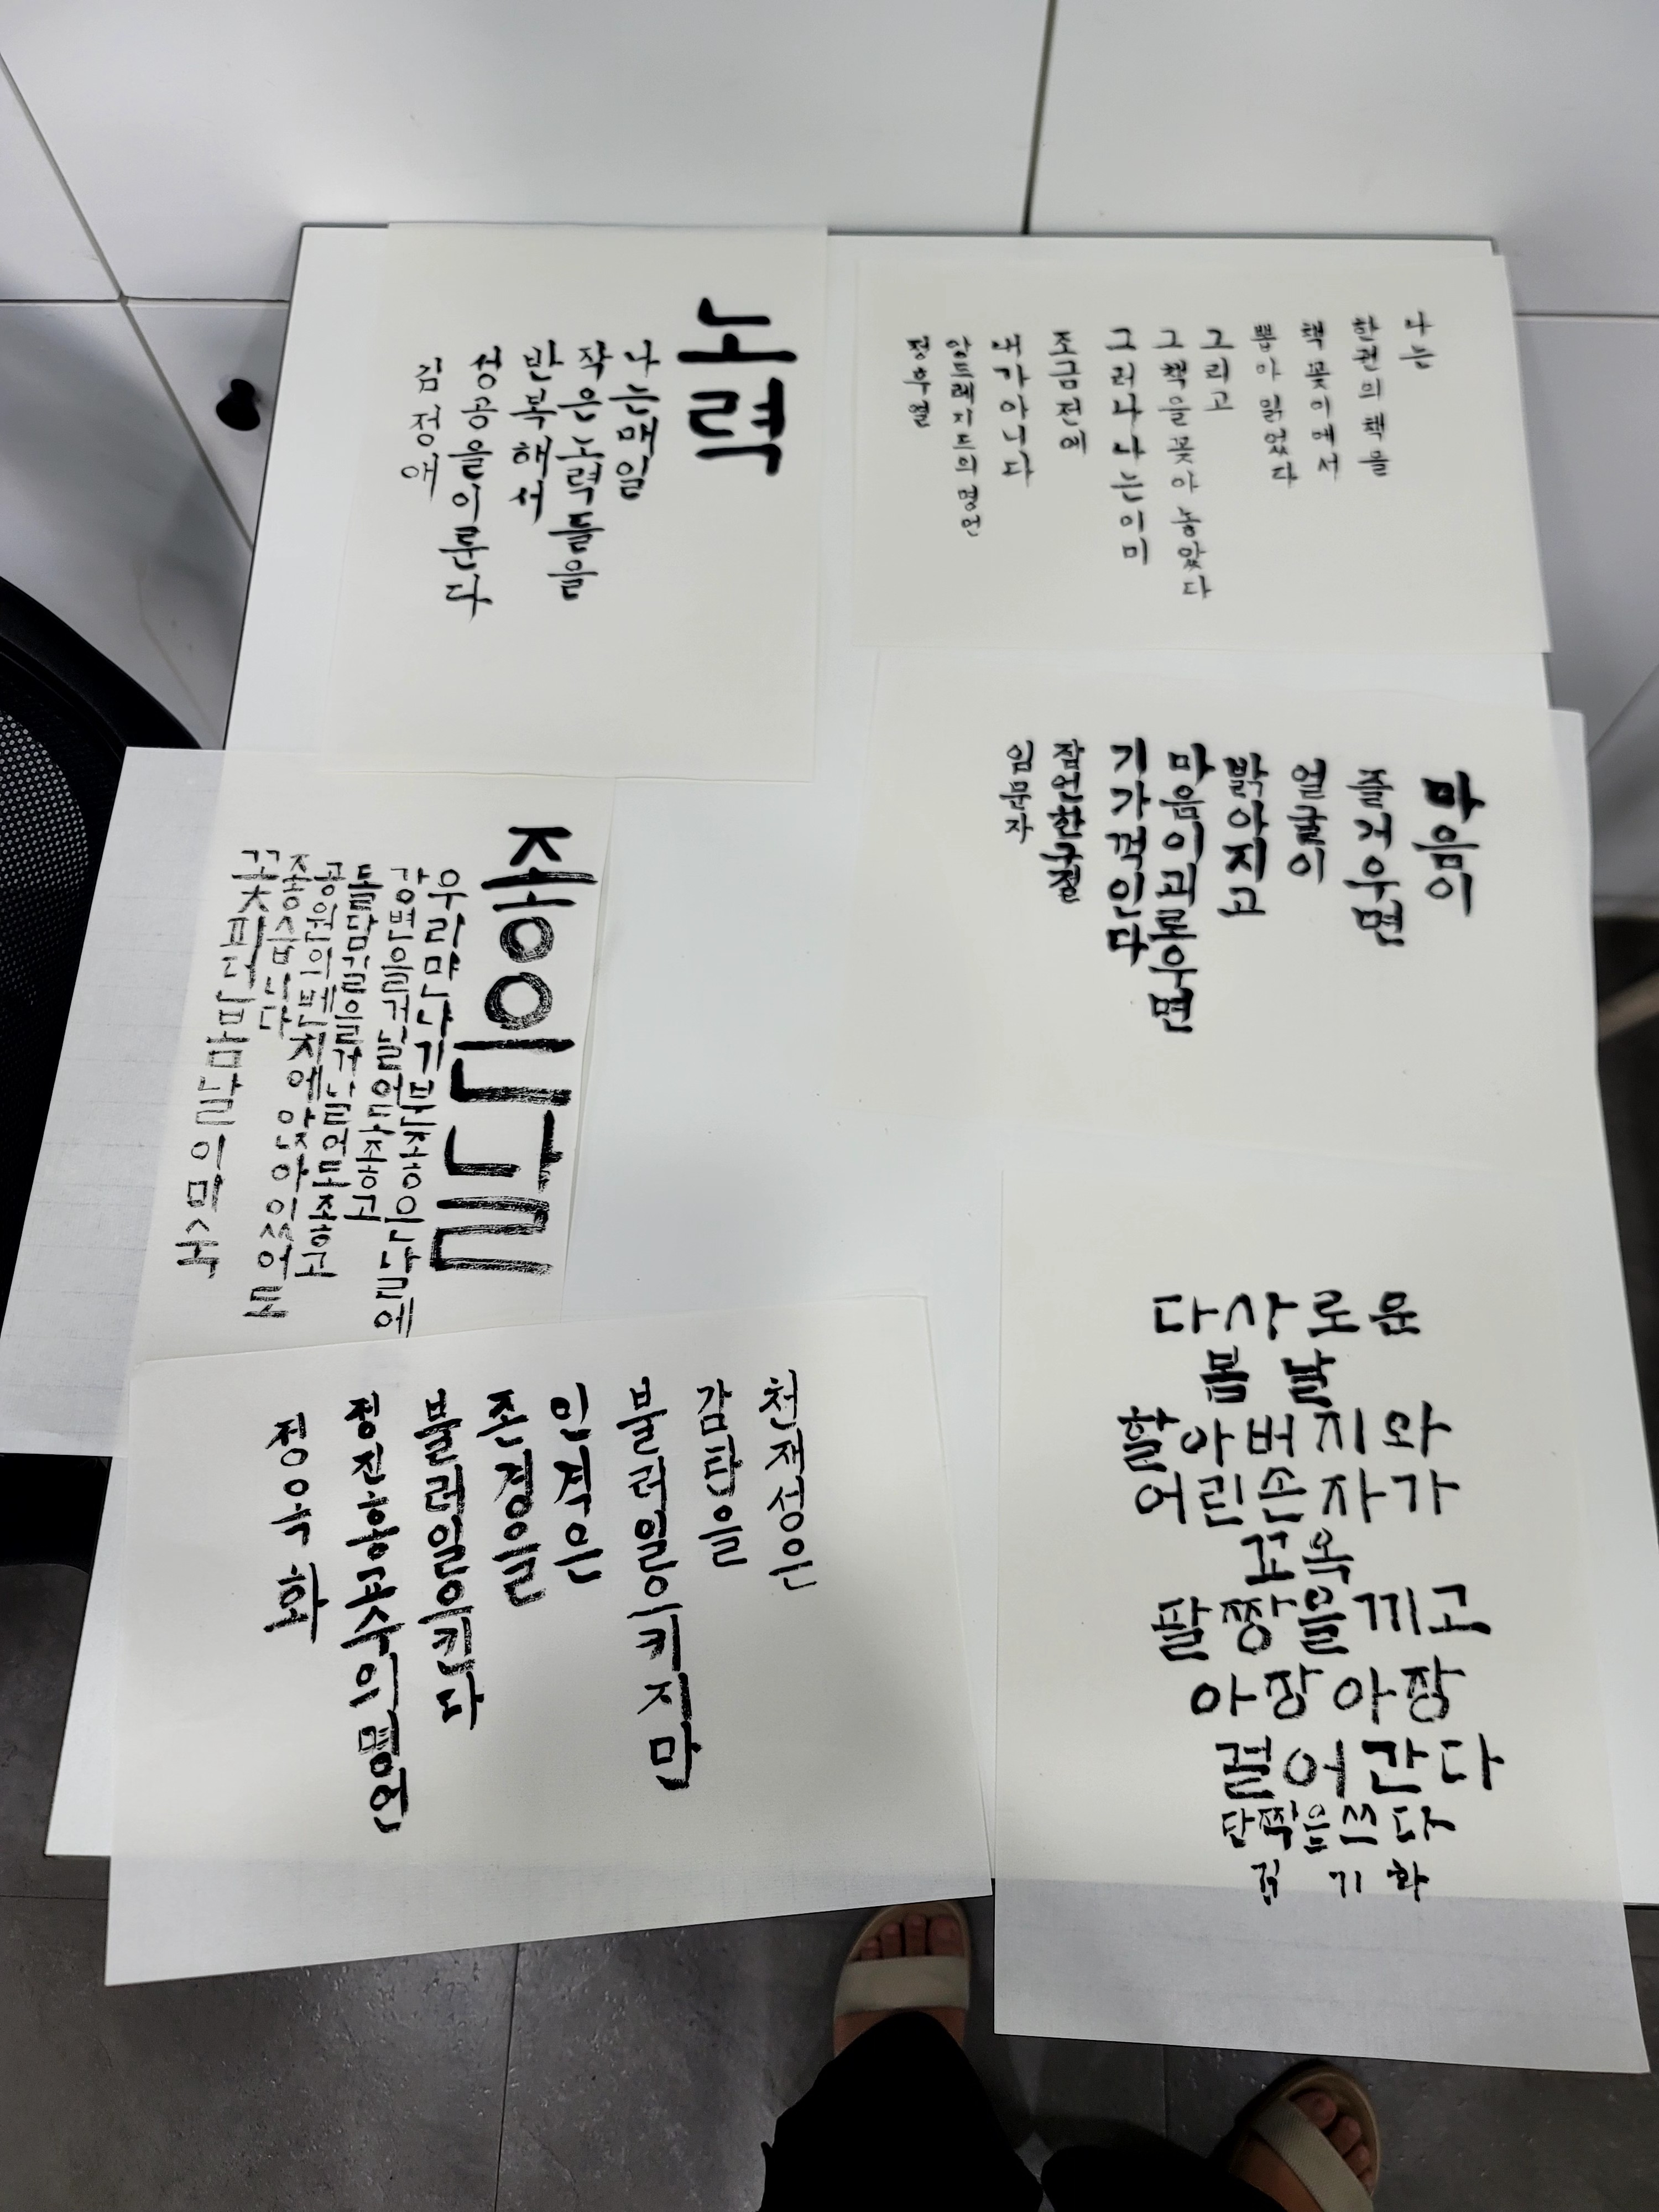 노력
나는매일
작은노력들을
반복해서
성공을이룬다
김정애
나는
한권의책을
책꽂이에서
뽑아읽었다
그리고
그책을꽂아놓았다
그러나나는이미
조금전에
내가아니다
앙드레지드의명언
정우열
마음이
즐거우면
얼굴이
밝아지고
마음이괴로우면
기가꺽인다
잠언한구절
임문자
좋은날
우리만나기분좋은날에
강변을거닐어도좋고
돌담길을거닐어도좋고
공원의벤치에앉아있어도
좋습니다
꽃피는봄날이미숙
천재성은
감탄을
불러일으키지만
인격은
존경을
불러일으킨다
정진홍교수의명언
정옥화
다사로운
봄날
할아버지와
어린손자가
꼬옥
팔짱을끼고
아장아장
걸어간다
단짝은쓰다
김기화